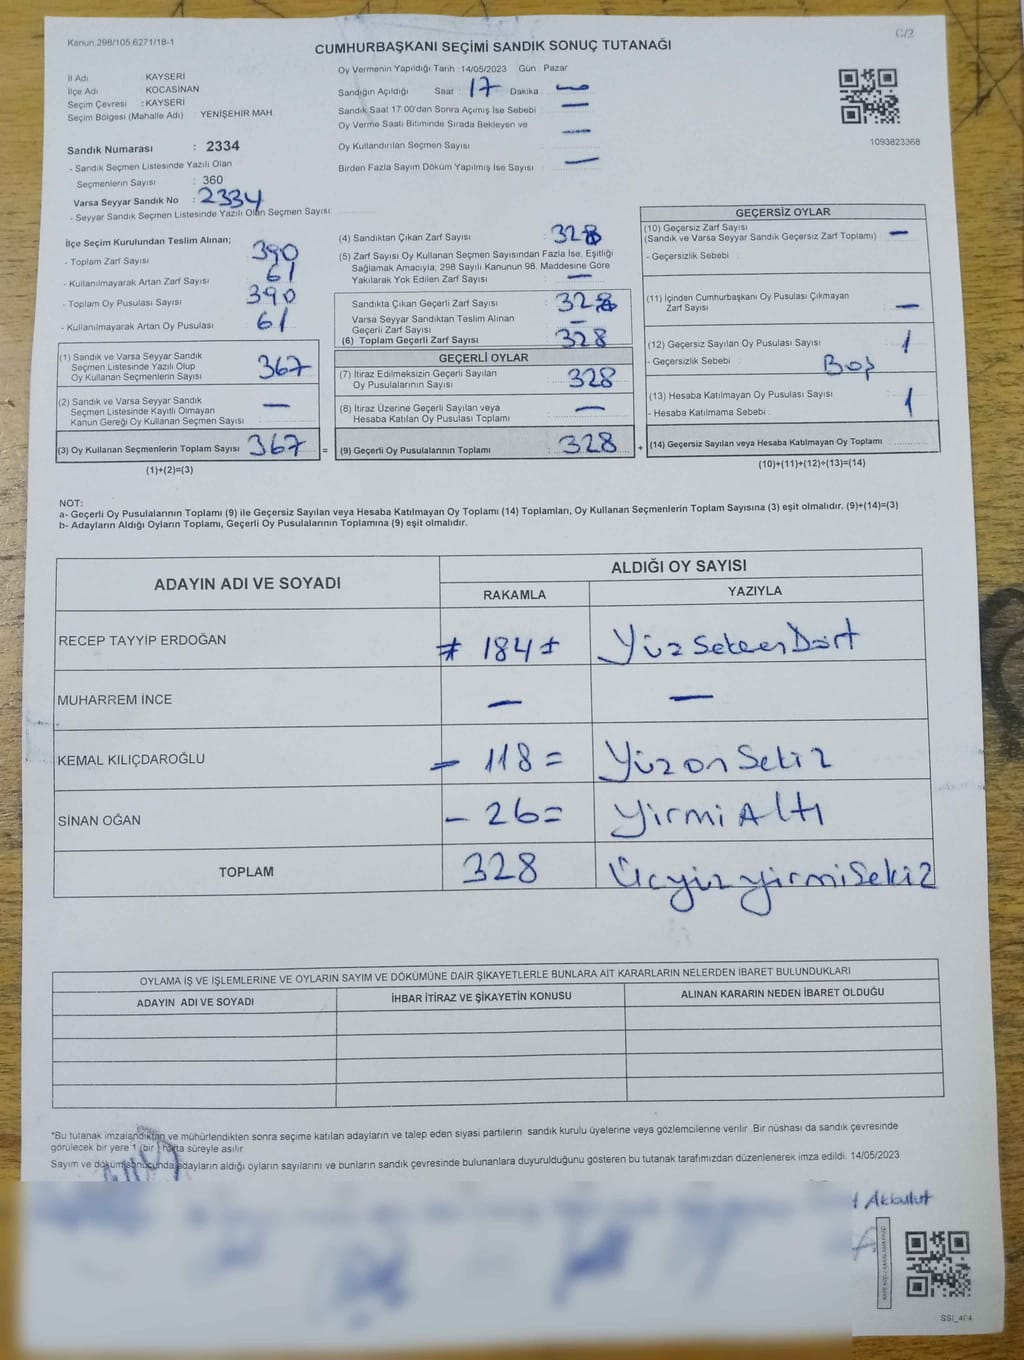 Kanun.298/105,6271/18-1
C/2
CUMHURBAŞKANI SEÇİMİ SANDIK SONUÇ TUTANAĞI
İl Adı KAYSERİ
İlçe Adı KOCASİNAN
Seçim Çevresi : KAYSERİ
Seçim Bölgesi (Mahalle Adı) YENİŞEHİR MAH
Sandık Numarası : 2334
- Sandık Seçmen Listesinde Yazılı Olan
Seçmenlerin Sayısı : 360
Varsa Seyyar Sandık No : 2334
- Seyyar Sandık Seçmen Listesinde Yazılı Olan Seçmen Sayısı:
Oy Vermenin Yapıldığı Tarih : 14/05/2023 Gün : Pazar
Sandığın Açıldığı Saat : 17 Dakika : —
Sandık Saat 17.00'dan Sonra Açımış İse Sebebi : —
Oy Verme Saati Bitiminde Sırada Bekleyen ve
Oy Kullandırılan Seçmen Sayısı : —
Birden Fazla Sayım Döküm Yapılmış İse Sayısı : —
1093823368
İlçe Seçim Kurulundan Teslim Alınan;
- Toplam Zarf Sayısı : 390
- Kullanılmayarak Artan Zarf Sayısı : 61
- Toplam Oy Pusulası Sayısı : 390
- Kullanılmayarak Artan Oy Pusulası : 61
(1) Sandık ve Varsa Seyyar Sandık
Seçmen Listesinde Yazılı Olup
Oy Kullanan Seçmenlerin Sayısı : 367
(2) Sandık ve Varsa Seyyar Sandık
Seçmen Listesinde Kayıtlı Olmayan
Kanun Gereği Oy Kullanan Seçmen Sayısı : —
(3) Oy Kullanan Seçmenlerin Toplam Sayısı : 367
(1)+(2)=(3)
(4) Sandıktan Çıkan Zarf Sayısı : 328
(5) Zarf Sayısı Oy Kullanan Seçmen Sayısından Fazla İse, Eşitliği
Sağlamak Amacıyla, 298 Sayılı Kanunun 98. Maddesine Göre
Yakılarak Yok Edilen Zarf Sayısı : —
Sandıkta Çıkan Geçerli Zarf Sayısı : 328
Varsa Seyyar Sandıktan Teslim Alınan
Geçerli Zarf Sayısı : —
(6) Toplam Geçerli Zarf Sayısı : 328
GEÇERLİ OYLAR
(7) İtiraz Edilmeksizin Geçerli Sayılan
Oy Pusulalarının Sayısı : 328
(8) İtiraz Üzerine Geçerli Sayılan veya
Hesaba Katılan Oy Pusulası Toplamı : —
= (9) Geçerli Oy Pusulalarının Toplamı : 328 +
GEÇERSİZ OYLAR
(10) Geçersiz Zarf Sayısı
(Sandık ve Varsa Seyyar Sandık Geçersiz Zarf Toplamı) : —
- Geçersizlik Sebebi :
(11) İçinden Cumhurbaşkanı Oy Pusulası Çıkmayan
Zarf Sayısı : —
(12) Geçersiz Sayılan Oy Pusulası Sayısı : 1
- Geçersizlik Sebebi : Boş
(13) Hesaba Katılmayan Oy Pusulası Sayısı : 1
- Hesaba Katılmama Sebebi :
(14) Geçersiz Sayılan veya Hesaba Katılmayan Oy Toplamı :
(10)+(11)+(12)+(13)=(14)
NOT:
a- Geçerli Oy Pusulalarının Toplamı (9) ile Geçersiz Sayılan veya Hesaba Katılmayan Oy Toplamı (14) Toplamları, Oy Kullanan Seçmenlerin Toplam Sayısına (3) eşit olmalıdır. (9)+(14)=(3)
b- Adayların Aldığı Oyların Toplamı, Geçerli Oy Pusulalarının Toplamına (9) eşit olmalıdır.
ADAYIN ADI VE SOYADI
ALDIĞI OY SAYISI
RAKAMLA YAZIYLA
RECEP TAYYİP ERDOĞAN # 184 ± Yüz Seksen Dört
MUHARREM İNCE — —
KEMAL KILIÇDAROĞLU - 118 = Yüz on Sekiz
SİNAN OĞAN - 26 = Yirmi Altı
TOPLAM 328 Üçyüz yirmi Sekiz
OYLAMA İŞ VE İŞLEMLERİNE VE OYLARIN SAYIM VE DÖKÜMÜNE DAİR ŞİKAYETLERLE BUNLARA AİT KARARLARIN NELERDEN İBARET BULUNDUKLARI
ADAYIN ADI VE SOYADI İHBAR İTİRAZ VE ŞİKAYETİN KONUSU ALINAN KARARIN NEDEN İBARET OLDUĞU
*Bu tutanak imzalandıktan ve mühürlendikten sonra seçime katılan adayların ve talep eden siyasi partilerin sandık kurulu üyelerine veya gözlemcilerine verilir. Bir nüshası da sandık çevresinde
görülecek bir yere 1 (bir) hafta süreyle asılır.
Sayım ve döküm sonucunda adayların aldığı oyların sayılarını ve bunların sandık çevresinde bulunanlara duyurulduğunu gösteren bu tutanak tarafımızdan düzenlenerek imza edildi. 14/05/2023
Akbulut
SSI_404